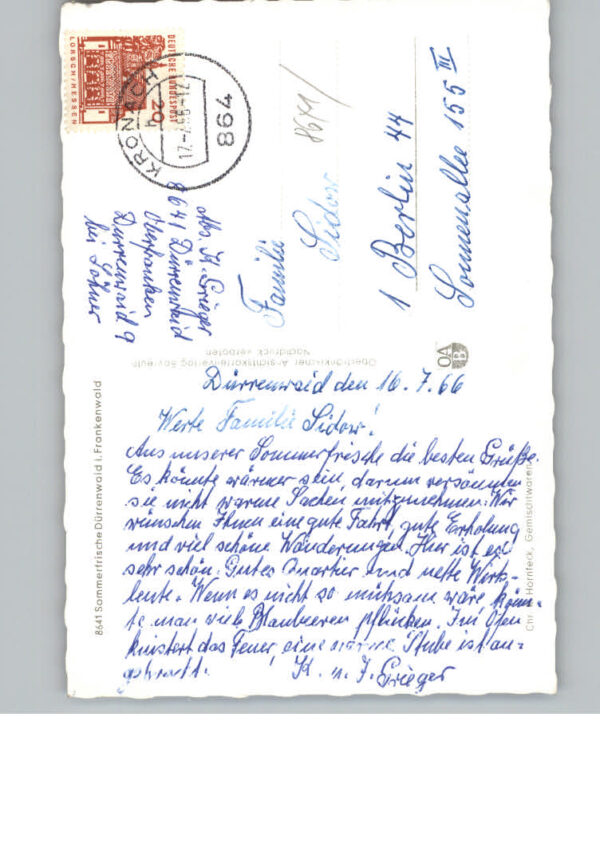 DEUTSCHE BUNDESPOST
LORSCH/HESSEN
20
KRONACH
864
17.-7.66
8641
Familie
Sidow
1 Berlin 44
Sonnenallee 155 III
Abs. K. Grieger
8641 Dürrenwaid
Oberfranken
Dürrenwaid 9
bei Löhner
Oberfränkischer Ansichtskartenverlag Bayreuth
Nachdruck verboten
OA
8641 Sommerfrische Dürrenwaid i. Frankenwald
Chr. Hornfeck, Gemischtwaren
Dürrenwaid den 16.7.66
Werte Familie Sidow!
Aus unserer Sommerfrische die besten Grüße.
Es könnte wärmer sein, darum versäumen
sie nicht warme Sachen mitzunehmen. Wir
wünschen Ihnen eine gute Fahrt, gute Erholung
und viel schöne Wanderungen. Hier ist es
sehr schön. Gutes Quartier und nette Wirts-
leute. Wenn es nicht so mühsam wäre könn-
te man viele Blaubeeren pflücken. Im Ofen
knistert das Feuer, eine warme Stube ist an-
gebracht. K. u. J. Grieger